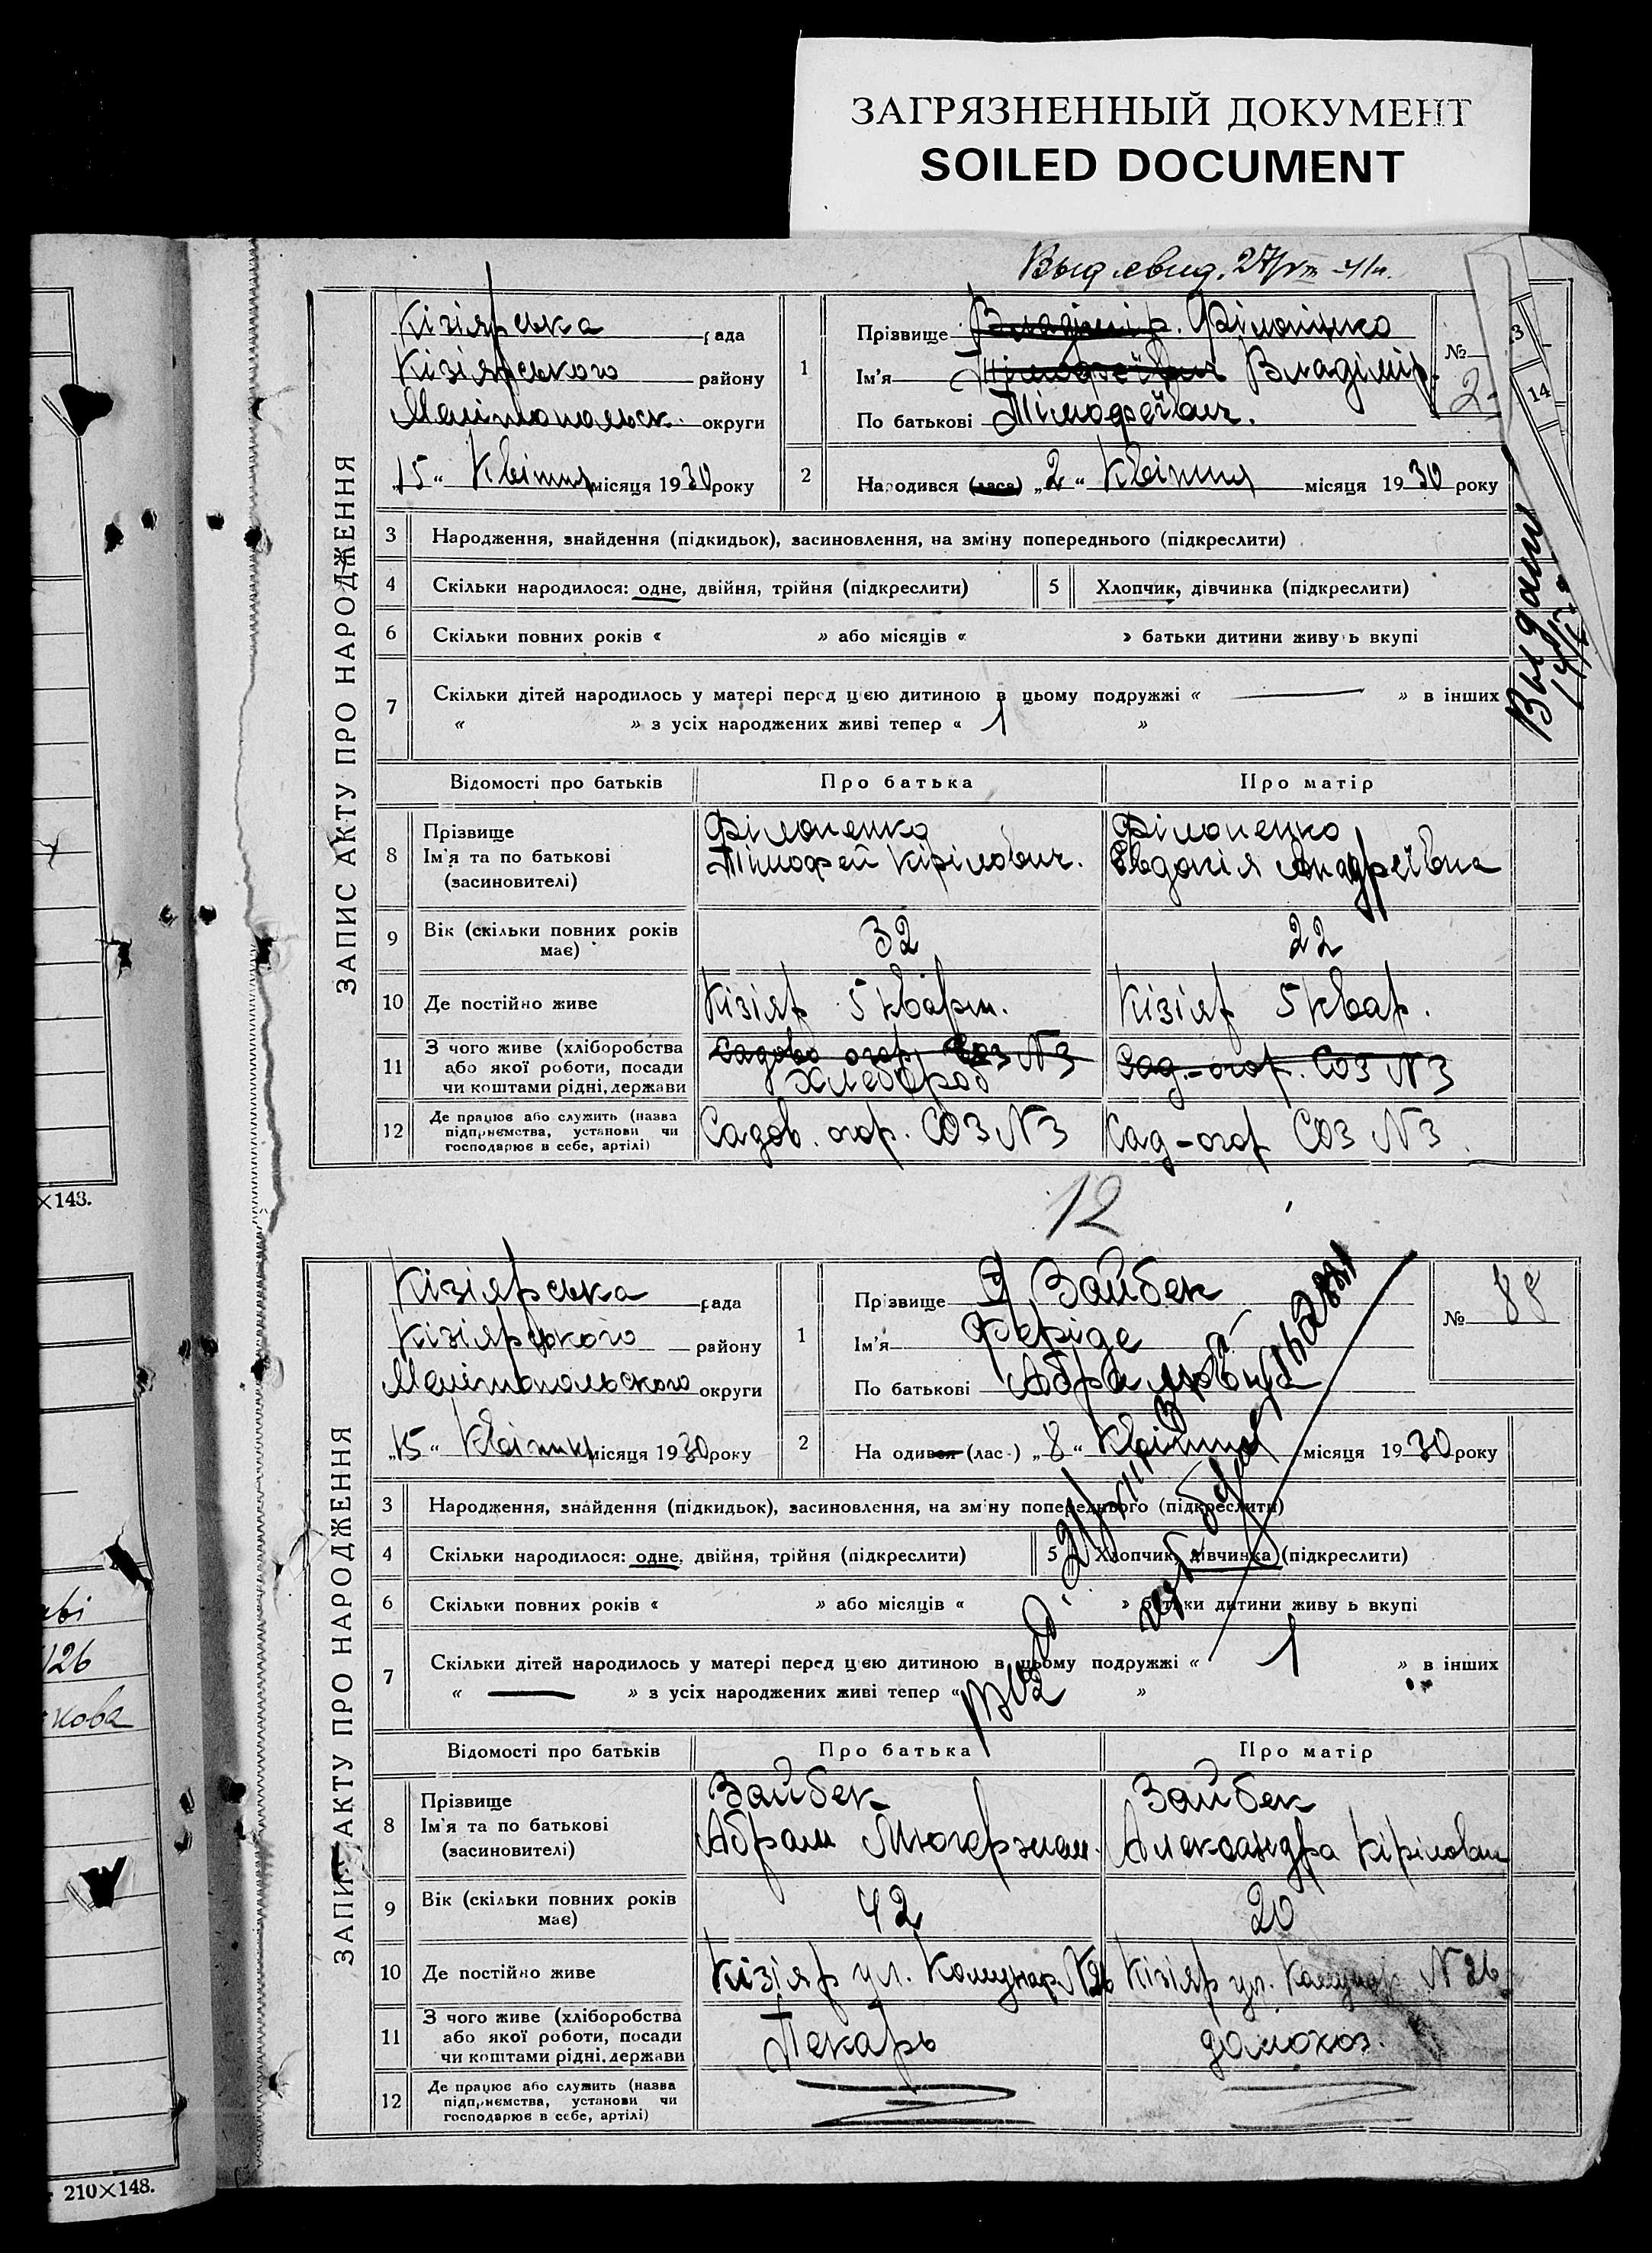 ЗАГРЯЗНЕННЫЙ ДОКУМЕНТ
SOILED DOCUMENT
Выд. свид. 27/VIII-41г.
ЗАПИС АКТУ ПРО НАРОДЖЕННЯ
Кізіярська рада
Кізіярського району
Мелітопольск. округи
„15“ Квітня місяця 1930 року
1 Прізвище Владімір. Філоненко
Ім'я Тімофеївич Владімір.
По батькові Тімофеївич.
№ 2-
3
14
2 Народився (лася) „2“ Квітня місяця 1930 року
3 Народження, знайдення (підкидьок), засиновлення, на зміну попереднього (підкреслити)
4 Скільки народилося: одне, двійня, трійня (підкреслити) 5 Хлопчик, дівчинка (підкреслити)
6 Скільки повних років « » або місяців « » батьки дитини живу ь вкупі
7 Скільки дітей народилось у матері перед цією дитиною в цьому подружжі « — » в інших
« » з усіх народжених живі тепер « 1 »
Выдан
Відомості про батьків Про батька Про матір
8 Прізвище Філоненко Філоненко
Ім'я та по батькові Тімофей Кірілович. Євдокія Андреївна
(засиновителі)
9 Вік (скільки повних років має) 32 22
10 Де постійно живе Кізіяр 5 кварт. Кізіяр 5 квар.
11 З чого живе (хліборобства Садово огор. СОЗ №3 Сад.-огор. СОЗ №3
або якої роботи, посади Хлебороб
чи коштами рідні, держави
12 Де працює або служить (назва Садов. огор. СОЗ №3 Сад-огор СОЗ №3
підприємства, установи чи
господарює в себе, артілі)
×148.
12
ЗАПИС АКТУ ПРО НАРОДЖЕННЯ
Кізіярська рада
Кізіярського району
Мелітопольського округи
„15“ Квітня місяця 1930 року
1 Прізвище Зайбек
Ім'я Феріде
По батькові Абрамовна
№ 88
2 На одився (лас-) „8“ Квітня місяця 1930 року
3 Народження, знайдення (підкидьок), засиновлення, на зміну попереднього (підкреслити)
4 Скільки народилося: одне, двійня, трійня (підкреслити) 5 Хлопчик, дівчинка (підкреслити)
6 Скільки повних років « » або місяців « » батьки дитини живу ь вкупі
7 Скільки дітей народилось у матері перед цією дитиною в цьому подружжі « 1 » в інших
« — » з усіх народжених живі тепер « »
Відомості про батьків Про батька Про матір
8 Прізвище Зайбек Зайбек
Ім'я та по батькові Абрам Александра Кірілован
(засиновителі)
9 Вік (скільки повних років має) 42 20
10 Де постійно живе Кізіяр ул. Комунар №26 Кізіяр ул. Комунар №26
11 З чого живе (хліборобства Пекарь домохоз.
або якої роботи, посади
чи коштами рідні, держави
12 Де працює або служить (назва
підприємства, установи чи
господарює в себе, артілі)
126
кова
210×148.